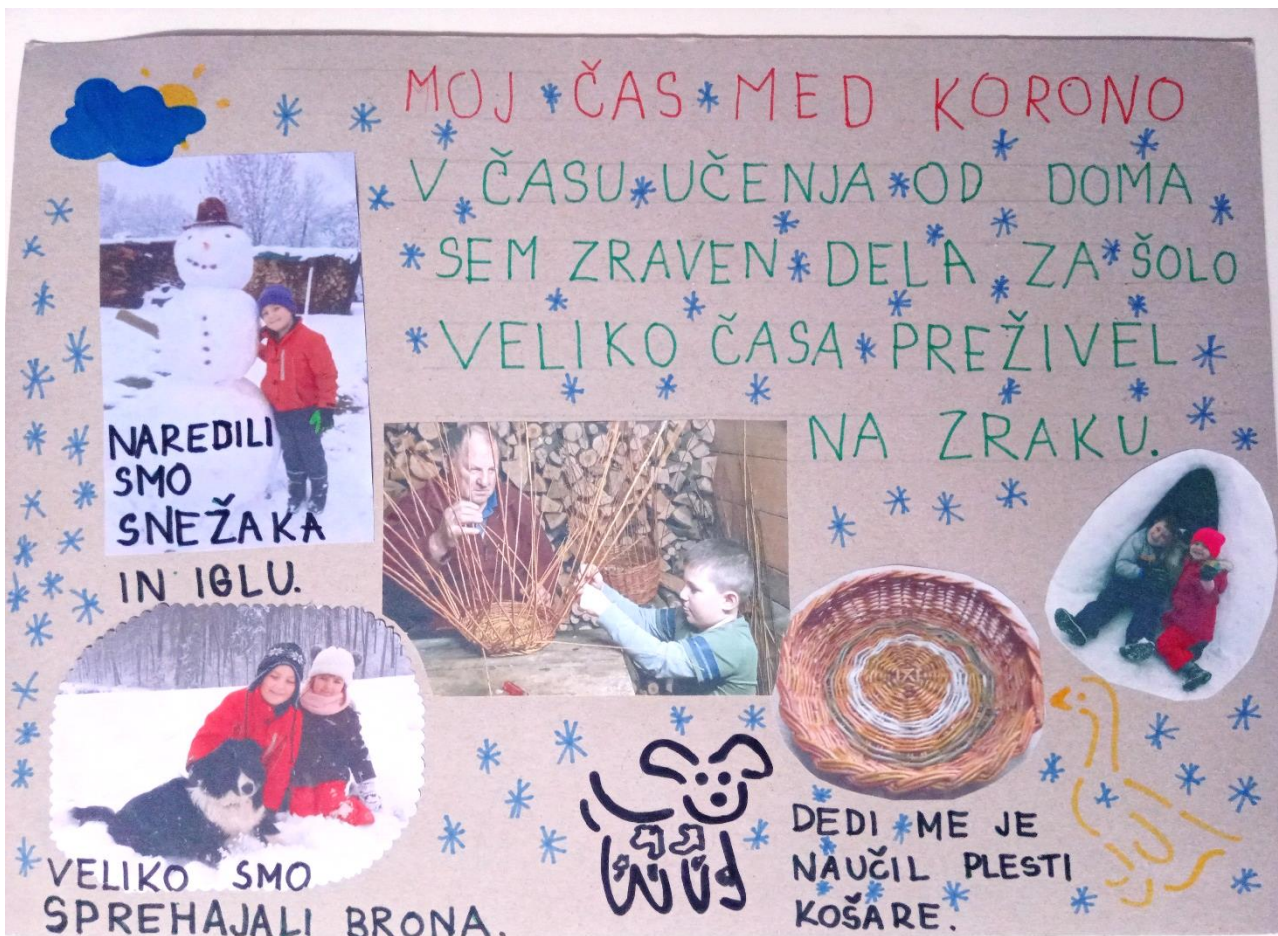 MOJ ČAS MED KORONO
V ČASU UČENJA OD DOMA
SEM ZRAVEN DELA ZA ŠOLO
VELIKO ČASA PREŽIVEL
NA ZRAKU.
NAREDILI
SMO
SNEŽAKA
IN IGLU.
VELIKO SMO
SPREHAJALI BRONA.
DEDI ME JE
NAUČIL PLESTI
KOŠARE.